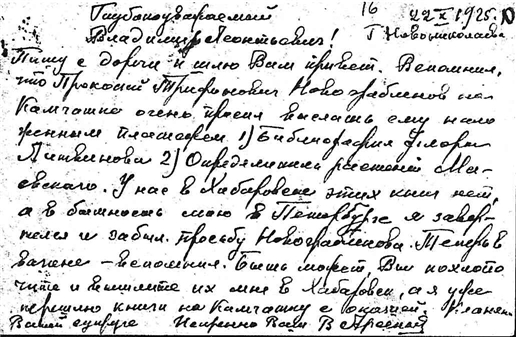 16 22 X 1925.
Глубокоуважаемый
Владимир Леонтьевич! Г. Новониколаевск
Пишу с дороги и шлю Вам привет. Вспомнил,
что Прокопий Трифонович Новограбленов на
Камчатке очень просил выслать ему нало
женным платежем 1) Библиография флоры
Литвинова 2) Определитель растений Ма-
евского. У нас в Хабаровске этих книг нет,
а в бытность мою в Петербурге я завер-
телся и забыл просьбу Новограбленова. Теперь в
вагоне – вспомнил. Быть может, Вы похлопо
чите и вышлите их мне в Хабаровск, а я уже
перешлю книги на Камчатку с оказией. Кланяюсь
Вашей супруге Искренно Ваш В Арсеньев